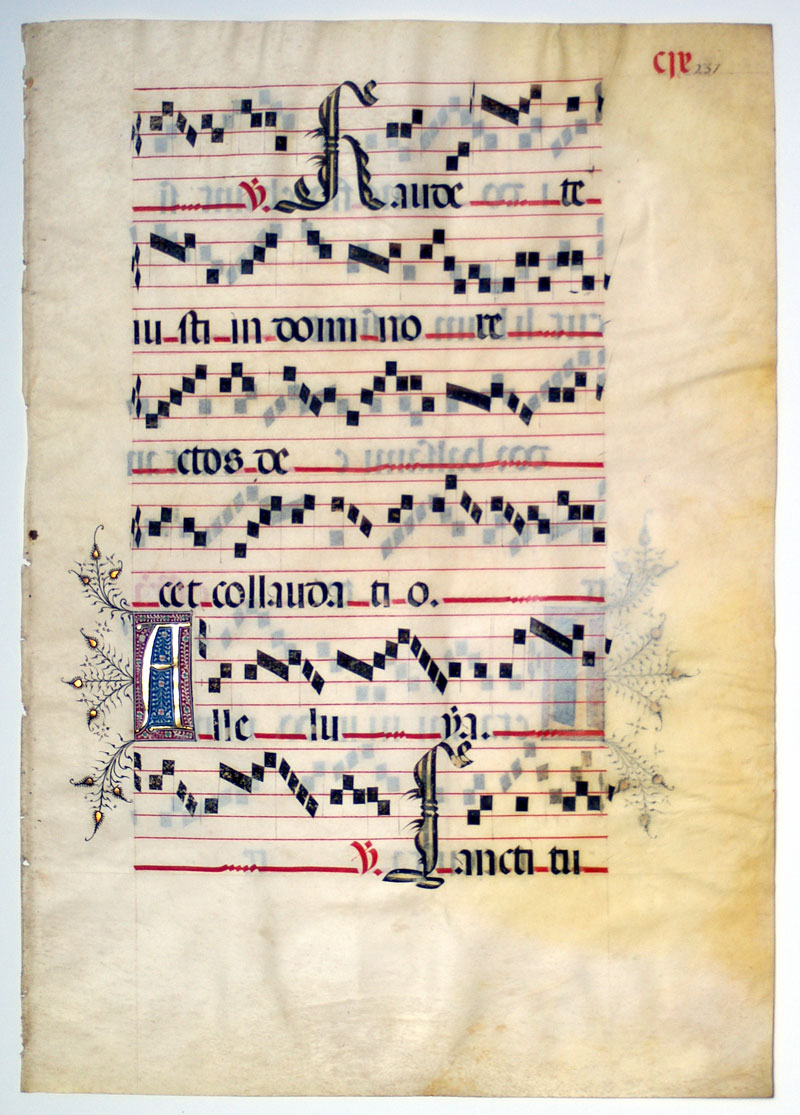 ℣. Gaude te
iu sti in domi no re
ctos de
cet collauda ti o.
A lle lu ya.
℣. Sancti tu